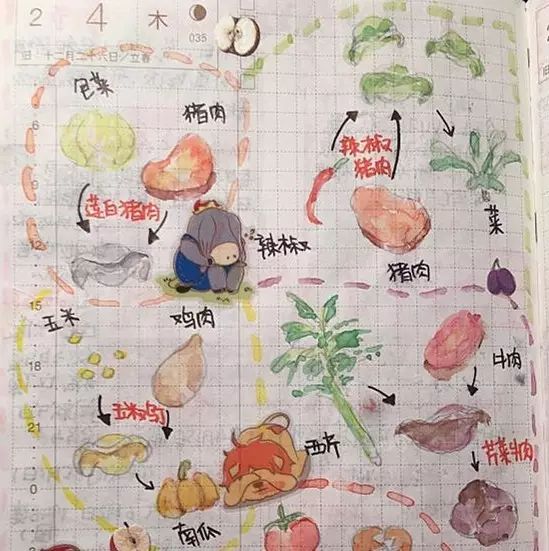 2 4 木
035
旧·十二月二十六日/立春
包菜
猪肉
6
9
莲白猪肉
12
辣椒
猪肉
辣椒
菜
猪肉
15
玉米
鸡肉
18
牛肉
玉米鸡丁
21
西芹
芹菜牛肉
0
南瓜